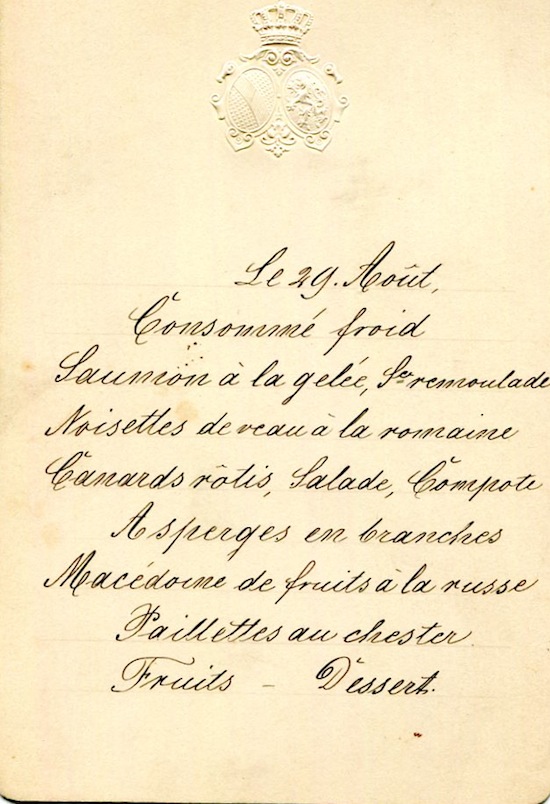 Le 29. Août,
Consommé froid
Saumon à la gelée, Sce remoulade
Noisettes de veau à la romaine
Canards rôtis, Salade, Compote
Asperges en branches
Macédoine de fruits à la russe
Paillettes au chester
Fruits - Dessert.